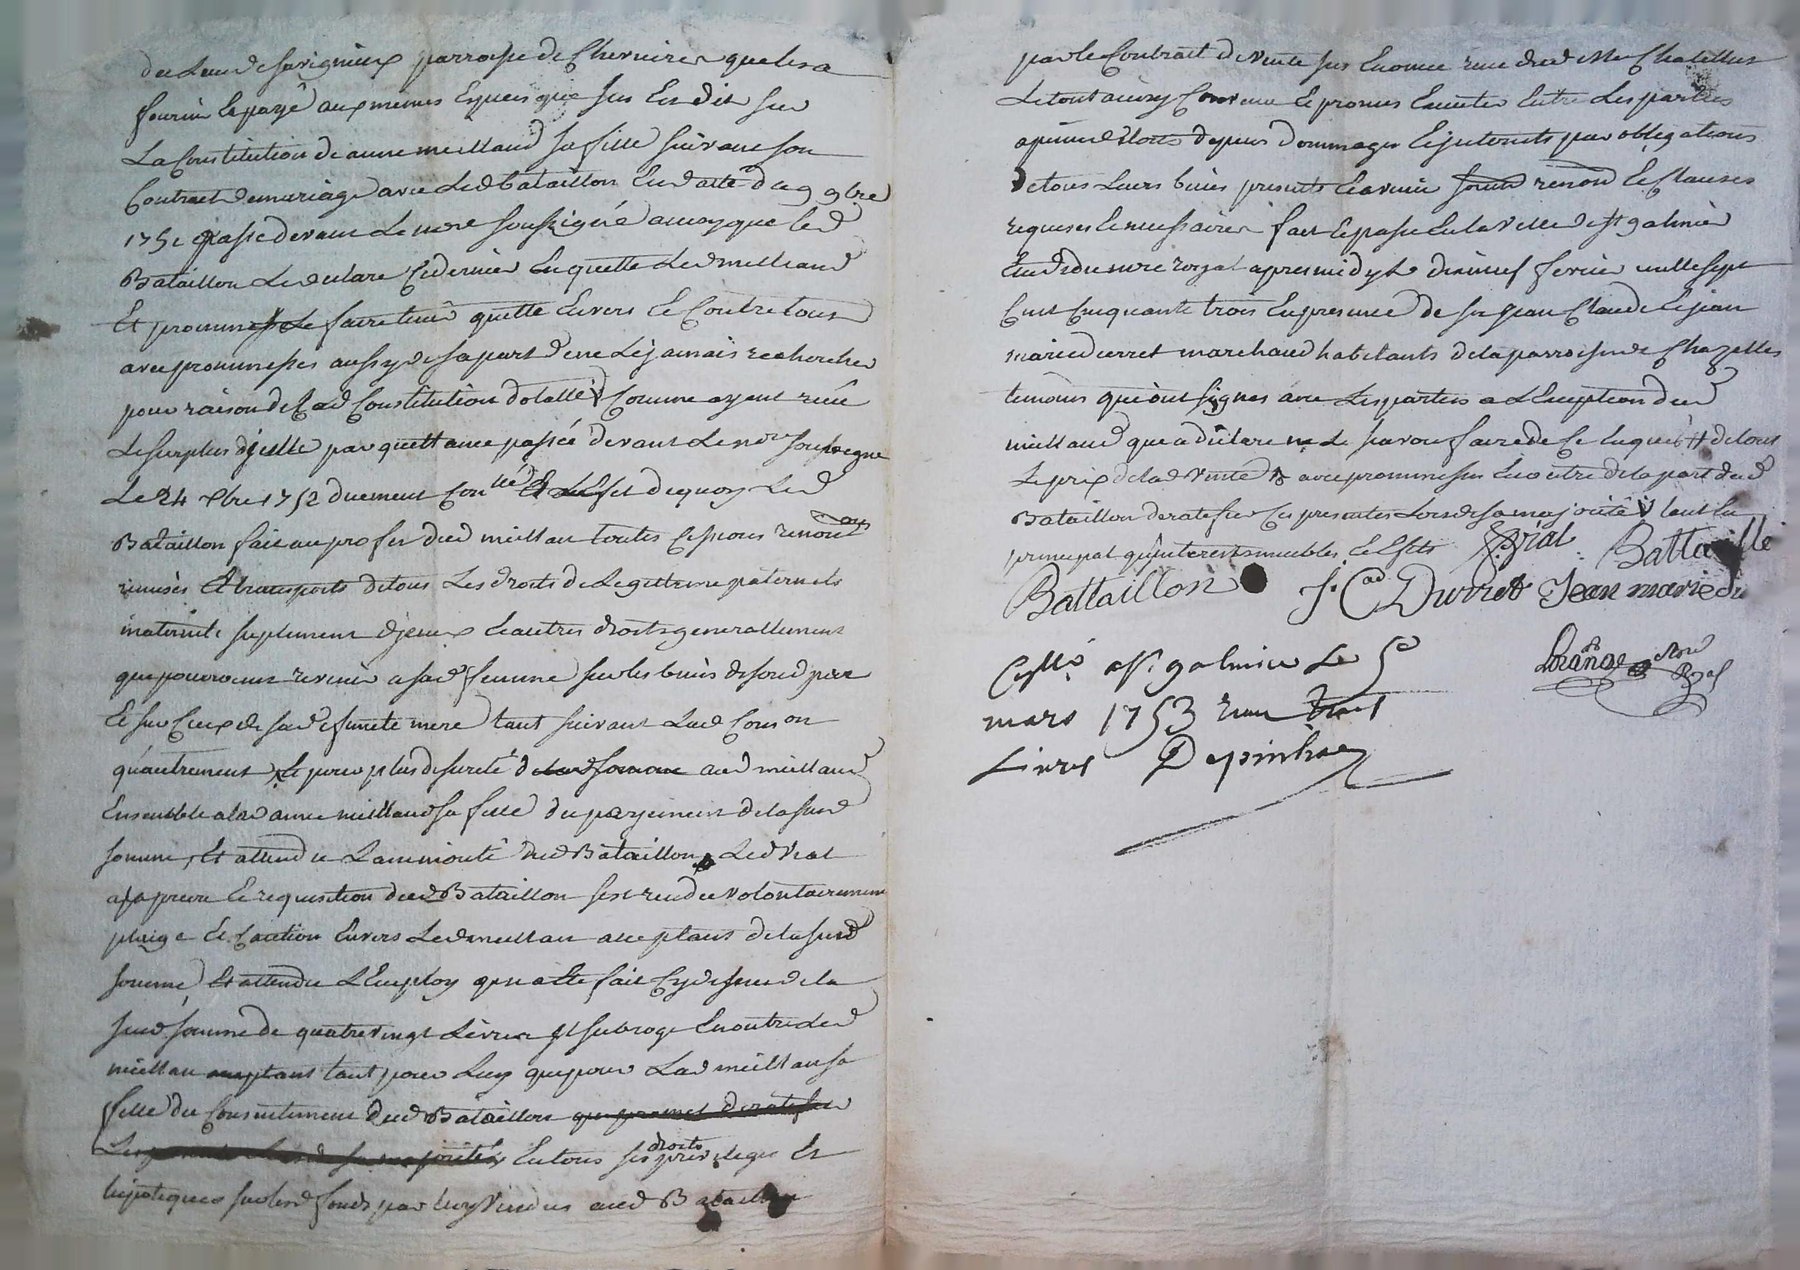 du lieu de Savignieux parroisse de Chevrieres que lesd
fournir et payé aux memes especes que sus est dit sur
La Constitution de anne meillaud sa fille suivant son
Contract de mariage avec Led bataillon en datte du 9 9bre
1752 passé devant Le no.re soussigné au moyen que led
Bataillon Led declare Ced dernier en quitte Led meillaud
Et prommet de faire tenir quitte envers et Contre tous
avec promesses aussy de sa part de ne Le jamais rechercher
pour raison de Lad Constitution dotalle Comme ayant receu
Le surplus d'jcelle par quittance passée devant Le no.re soussigne
Le 24 xbre 1752 duement Con.llé Et au fet de quoy Led
Bataillon fait au profit dud meillau toutes Cessions
remises Et transports de tous Les droits de Legittime paternels
maternels suplement d'jceux et autres droits generallement
que pourroient revenir a sad femme sur les biens de sond pere
Et sur Ceux de sad defunte mere tant suivant Lad Con.on
qu'autrement, et pour plus de sureté de lad somme aud meillaud
Ensemble a lad anne meillaud sa fille du payement de la susd
somme, Et attendu La minorité dud Bataillon Led Vial
a sa priere et requisition dud Bataillon s'est rendu volontairement
pleige et Caution envers Led meillau acceptant de la susd
somme Et attendu L'employ qu'il a fait Cy dessus de la
susd somme de quatre vingt Livres Il subroge en outre Led
meillau acceptant tant pour Luy que pour Lad meillau sa
fille du Consentement dud Bataillon que promet de ratifier
Les de sa majorité En tous ses droits privileges Et
hipoteques sur lesd fonds par luy Vendus aud Bataillon
par le Contrait de Vente sus enoncé receu dud Me Chatellus
Le tout ainsy Convenu et promis executer entre Les parties
a peine de tous depens dommages et jnterests par obligations
de tous Leurs biens presents et avenir soum renon et Clauses
requises et necessaires fait et passé en la Ville de st galmier
Etude du no.re royal apres midy Le dixneuf fevrier mille sept
Cent Cinquante trois en presence de sr jean Claude et jean
marie durret marchand habitants de la parroisse de Chazelles
temoins qui ont signés avec Les parties a L'exception dud
meillaud que a declaré ne Le savoir faire de Ce enquis # de tout
Le prix de lad Vente avec promesse en outre de la part dud
Bataillon de ratifier Ces presentes Lors de sa majorité tant la
principal qu'interests meubles et effets Vial Battaille
Battaillon J. C.ad Durret Jean marie du
Con.llé a St. galmier Le 5e Lorange No.re
mars 1753 receu trois R.yal
Livres Depinhac